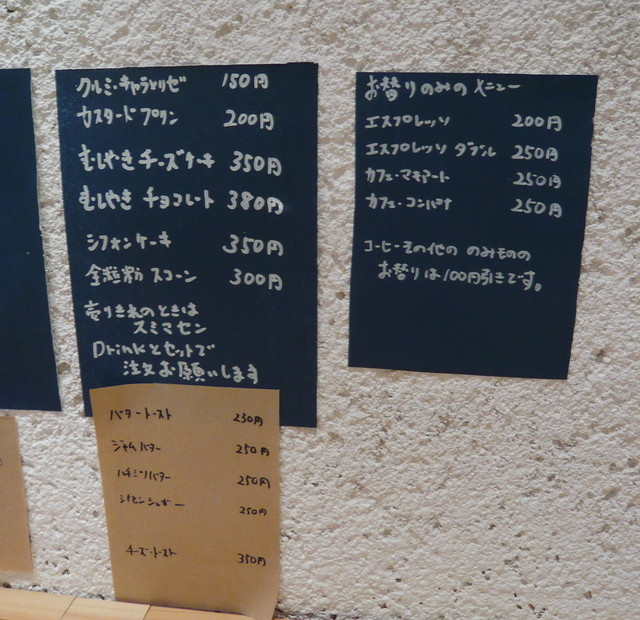 クルミ・キャラメリゼ 150円
カスタードプリン 200円
むしやきチーズケーキ 350円
むしやきチョコレート 380円
シフォンケーキ 350円
全粒粉スコーン 300円
売りきれのときは
スミマセン
Drinkとセットで
注文お願いします
バタートースト 230円
ジャムバター 250円
ハチミツバター 250円
シナモンシュガー 250円
チーズ・トースト 350円
お替りのみのメニュー
エスプレッソ 200円
エスプレッソ ダブル 250円
カフェ・マキアート 250円
カフェ・コンパナ 250円
コーヒーその他の のみものの
お替りは100円引きです。